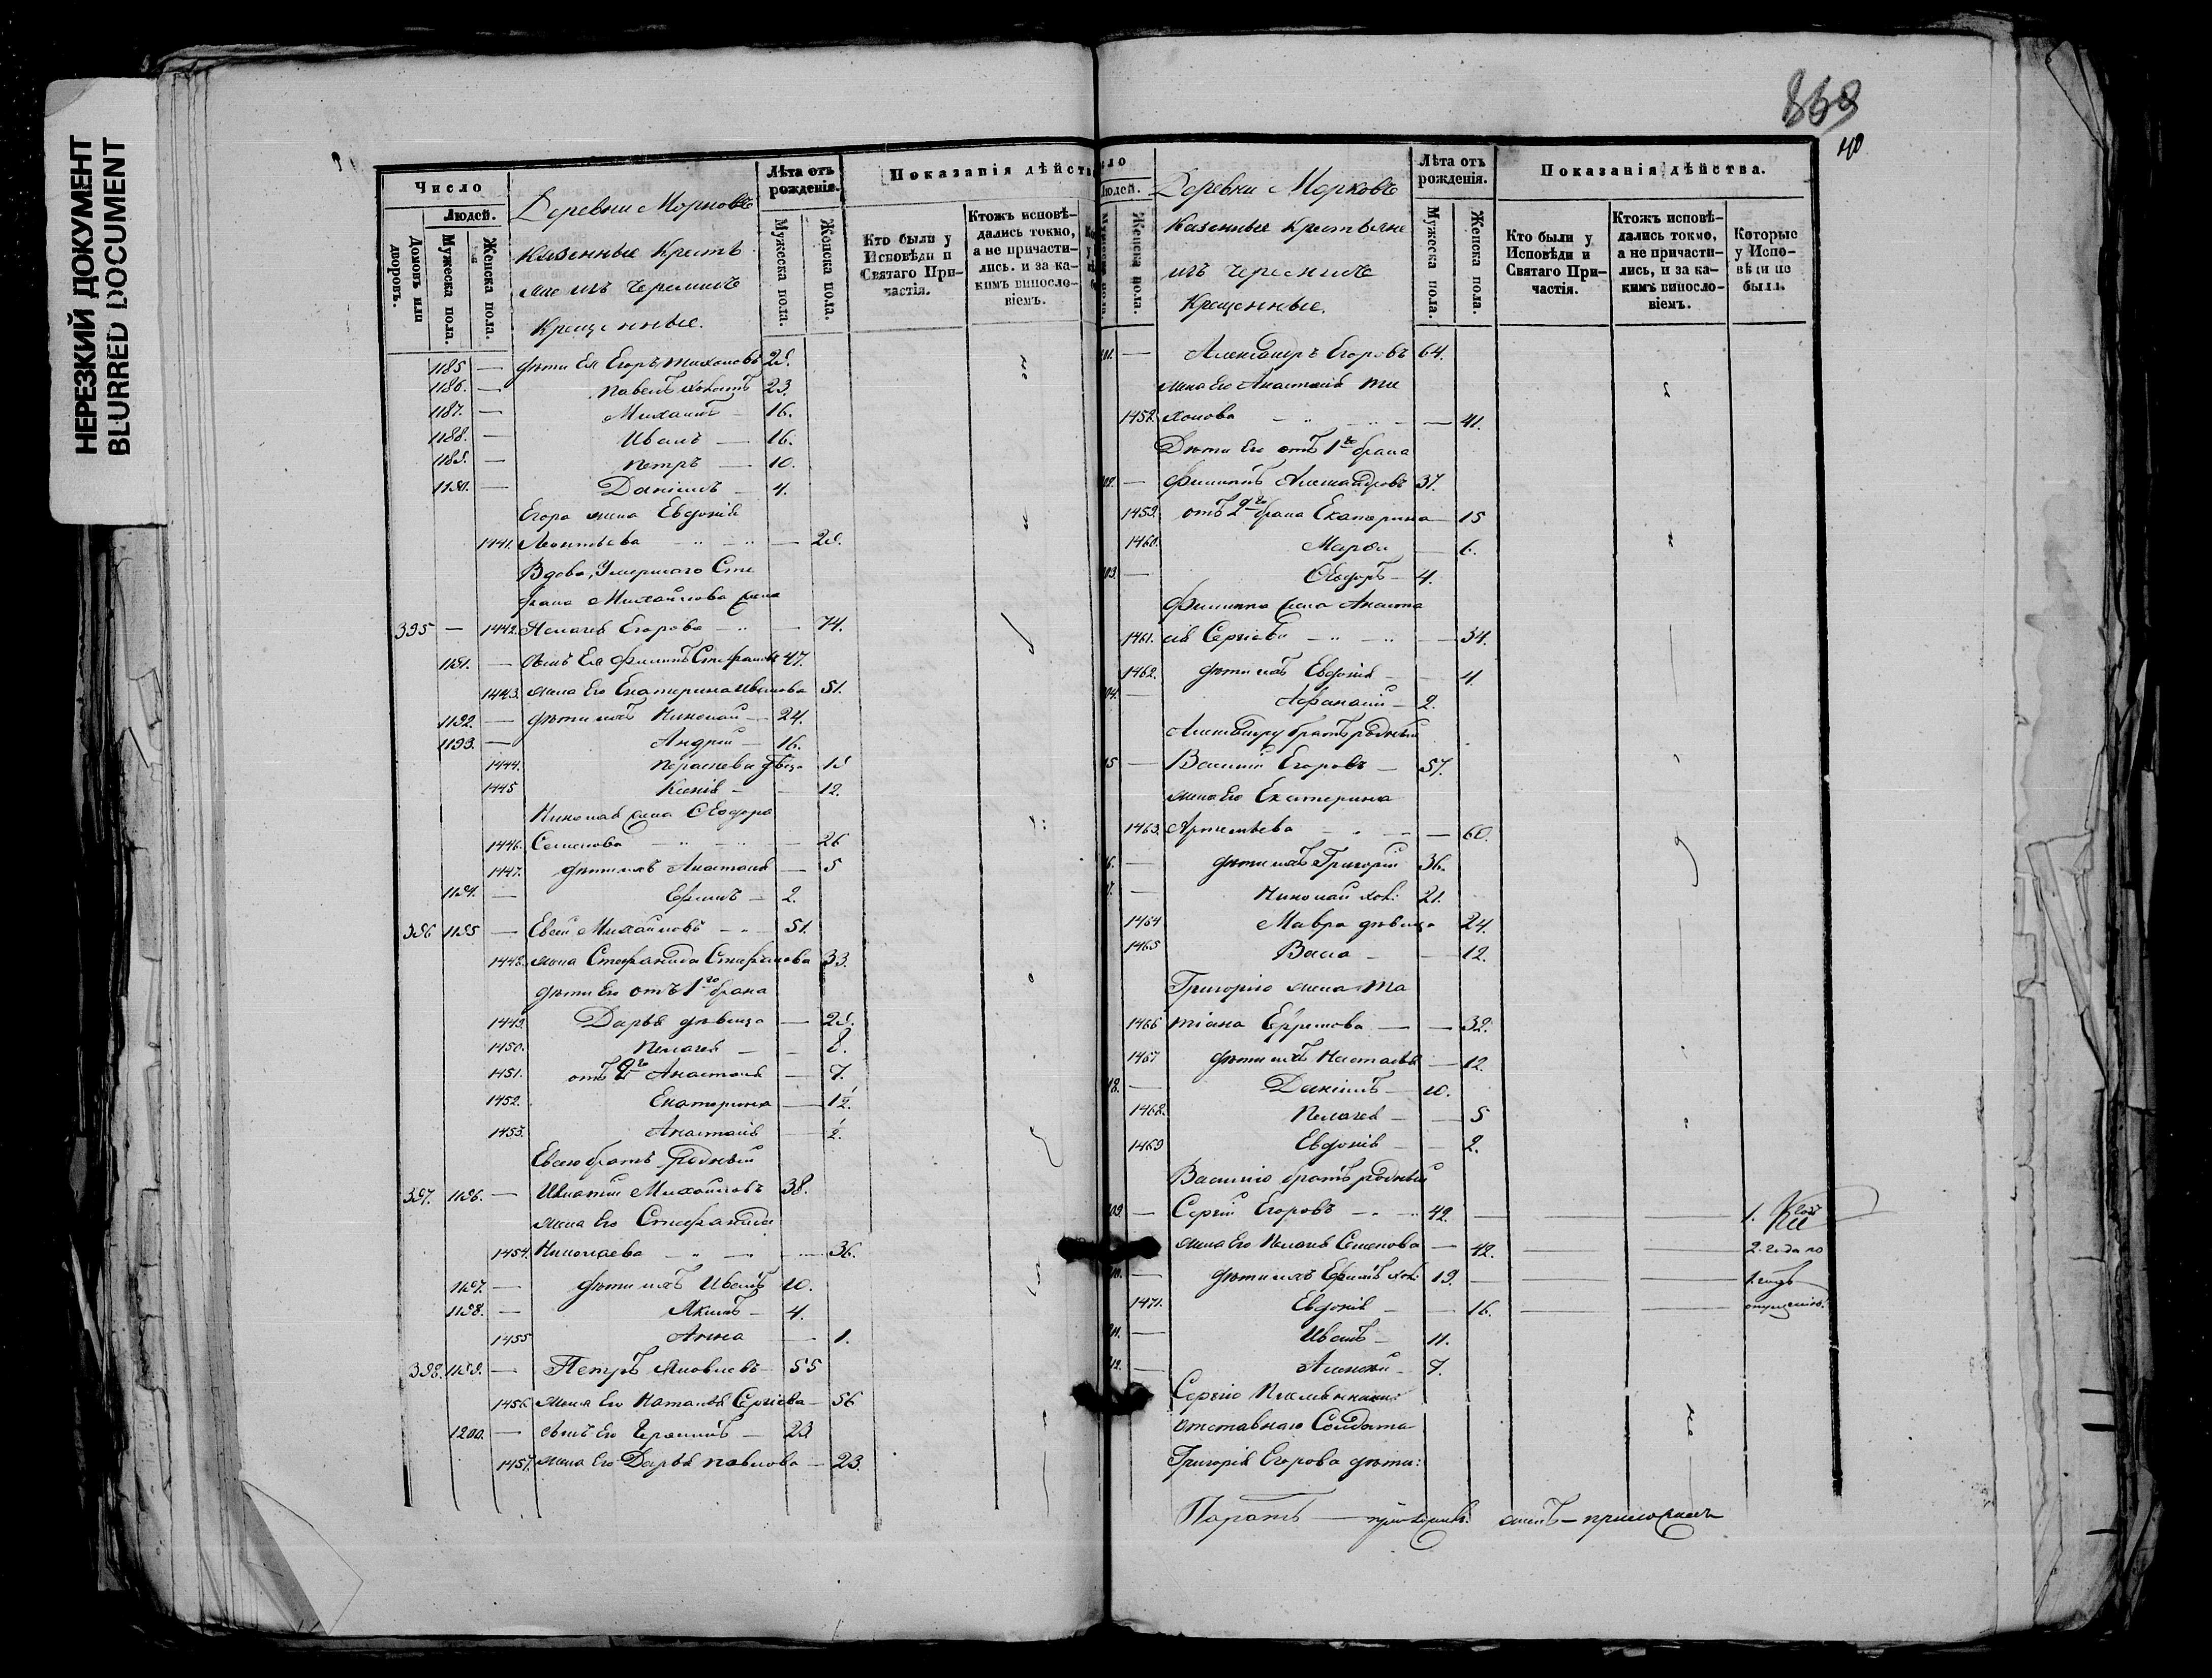 НЕРЕЗКИЙ ДОКУМЕНТ
BLURRED DOCUMENT
Число
Людей.
Домовъ или дворовъ.
Мужеска пола.
Женска пола.
Деревни Морковъ
казенные Кресть
яне изъ Черемисъ
Крещенные.
Лѣта отъ рожденія.
Мужеска пола.
Женска пола.
Показанія дѣйств
Кто были у Исповѣди и Святаго При-частія.
Ктожъ исповѣ-дались токмо, а не причасти-лись. и за ка-кимъ винословіемъ.
1185 — дѣти Ея Егоръ Тихоновъ 28.
1186. — Павелъ холостъ 23
1187. — Михаилъ — 16.
1188. — Иванъ — 16.
1189. — Петръ — 10.
1190. — Даніилъ — 4.
Егора жена Евдокія
1441. Леонтьева — 28.
Вдова, Умершаго Сте
фана Михайлова жена
395 — 1442. Пелагея Егорова — 74.
1191. — сынъ Ея Филипъ Стефановъ 47.
1443. жена Его Екатерина Иванова 51.
1192. — дѣти ихъ Николай — 24.
1193. — Андрей — 16.
1444. Параскева дѣвица 18
1445 Ксенія — 12.
Николая жена Ѳеодора
1446. Семенова — 26
1447. дѣти ихъ Анастасія — 5
1194. — Ефимъ — 2.
396 1195 — Евсей Михайловъ — 51.
1448. жена Стефанида Стефанова 33.
дѣти Его отъ 1го брака
1449. Дарья дѣвица — 28.
1450. Пелагея — 8.
1451. отъ 2го Анастасія — 7.
1452. Екатерина — 12.
1453. Анастасія — 2.
Евсею братъ родный
397. 1196. — Игнатій Михайловъ 38.
жена Его Стефанида
1454. Николаева — 36.
1197. — дѣти ихъ Иванъ 10.
1198. — Якимъ — 4.
1455 Анна — 1.
398. 1199. — Петръ Яковлевъ — 55
1456. жена Его Наталья Сергіева — 56
1200. — сынъ Его Герасимъ — 23
1457. жена Его Дарья Павлова — 23.
869
40
Людей.
Женска пола.
Деревни Морковъ
Казенные Крестьяне
изъ Черемисъ
Крещенные.
Лѣта отъ рожденія.
Мужеска пола.
Женска пола.
Показанія дѣйства.
Кто были у Исповѣди и Святаго При-частія.
Ктожъ исповѣ-дались токмо, а не причасти-лись, и за ка-кимъ винословіемъ.
Которые у Испо-вѣди не были.
— Александръ Егоровъ 64.
жена Его Анастасія Ти
1458. хонова — 41.
Дѣти Его отъ 1го брака
— Филипъ Александровъ 37.
1459. отъ 2го брака Екатерина — 15
1460. Марѳа — 6.
— Ѳеодоръ — 4.
Филиппа жена Анаста
1461. сія Сергіева — 34.
1462. дѣти ихъ Евдокія — 4
— Аѳанасій — 2.
Александру братъ родный
— Василій Егоровъ — 57.
жена Его Екатерина
1463. Артемьева — 60.
— дѣти ихъ Григорій 36.
— Николай хол: 21.
1464 Мавра дѣвица 24.
1465 Васса — 12.
Григорію жена Та
1466 тіана Ефремова — 32.
1467 дѣти ихъ Настасья — 12.
— Даніилъ — 10.
1468. Пелагея — 5
1469 Евдокія — 2.
Василію братъ родный
— Сергій Егоровъ — 42. 1.
жена Его Пелагея Семенова — 42. 2. года по
— дѣти ихъ Ефимъ хол: 19.
1471. Евдокія — 16. опущенію.
— Иванъ — 11.
— Алексѣй — 7.
Сергію Племянники
отставнаго Солдата
Григорія Егорова дѣти: